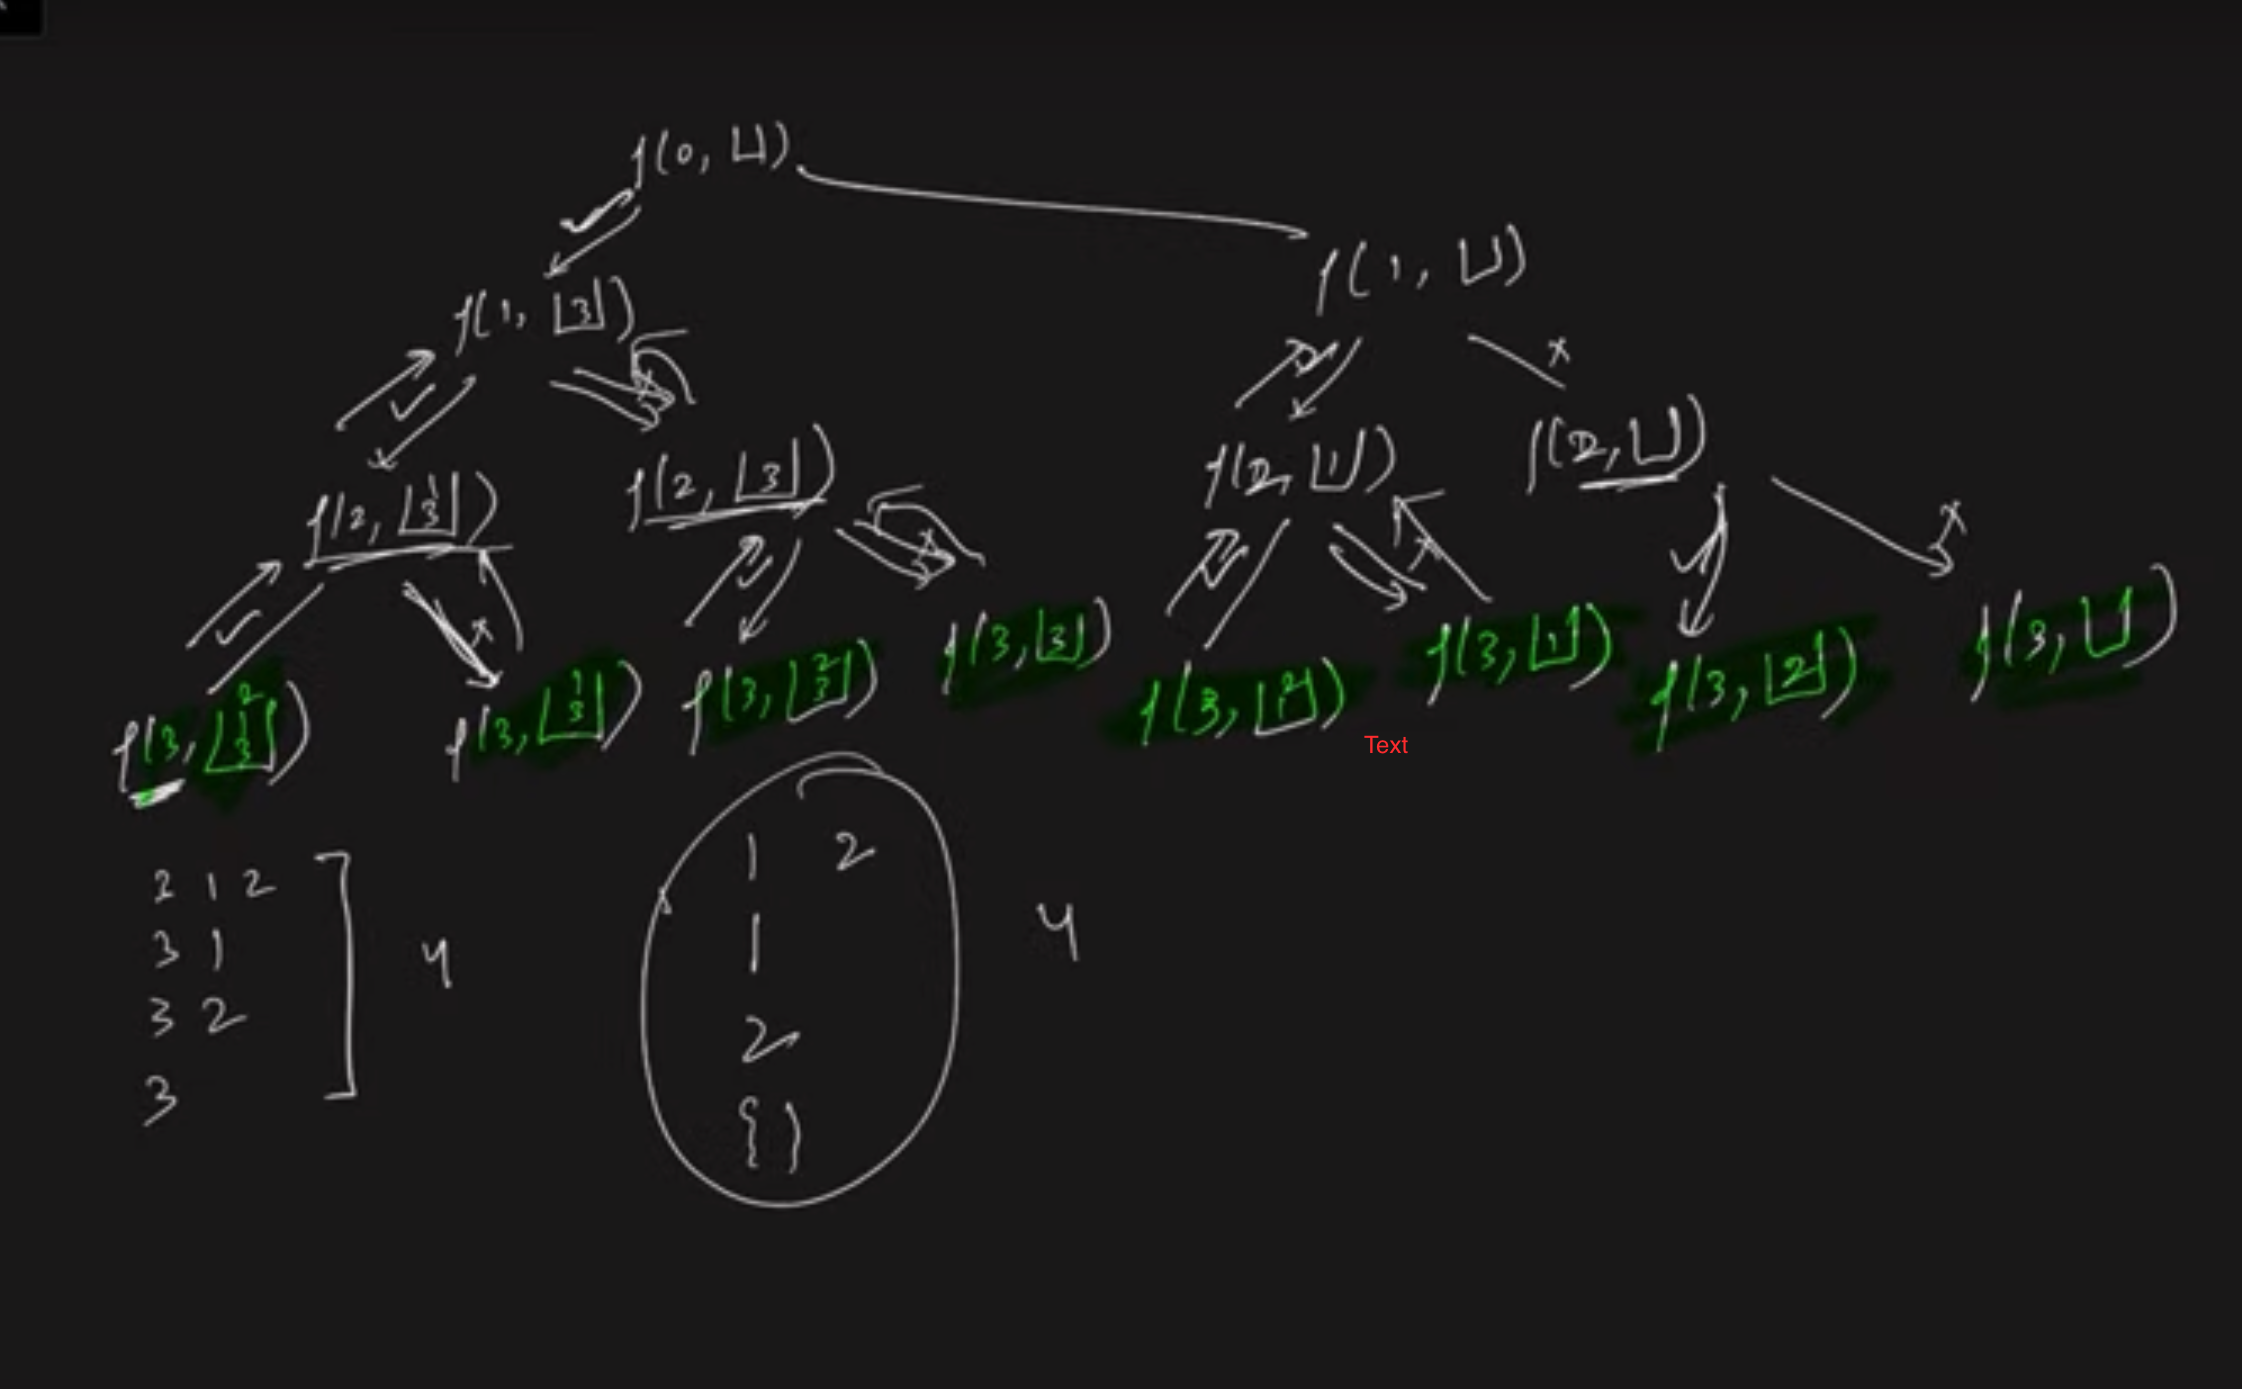 f(0, ⊔)
f(1, ⊔)
f(1, |3|)
f(2, |1 3|)
f(2, |3|)
f(2, |1|)
f(2, ⊔)
f(3, |2 1 3|)
f(3, |1 3|)
f(3, |2 3|)
f(3, |3|)
f(3, |2 1|)
f(3, |1|)
f(3, |2|)
f(3, ⊔)
Text
3 1 2
3 1
3 2
3
4
1 2
1
2
{ }
4